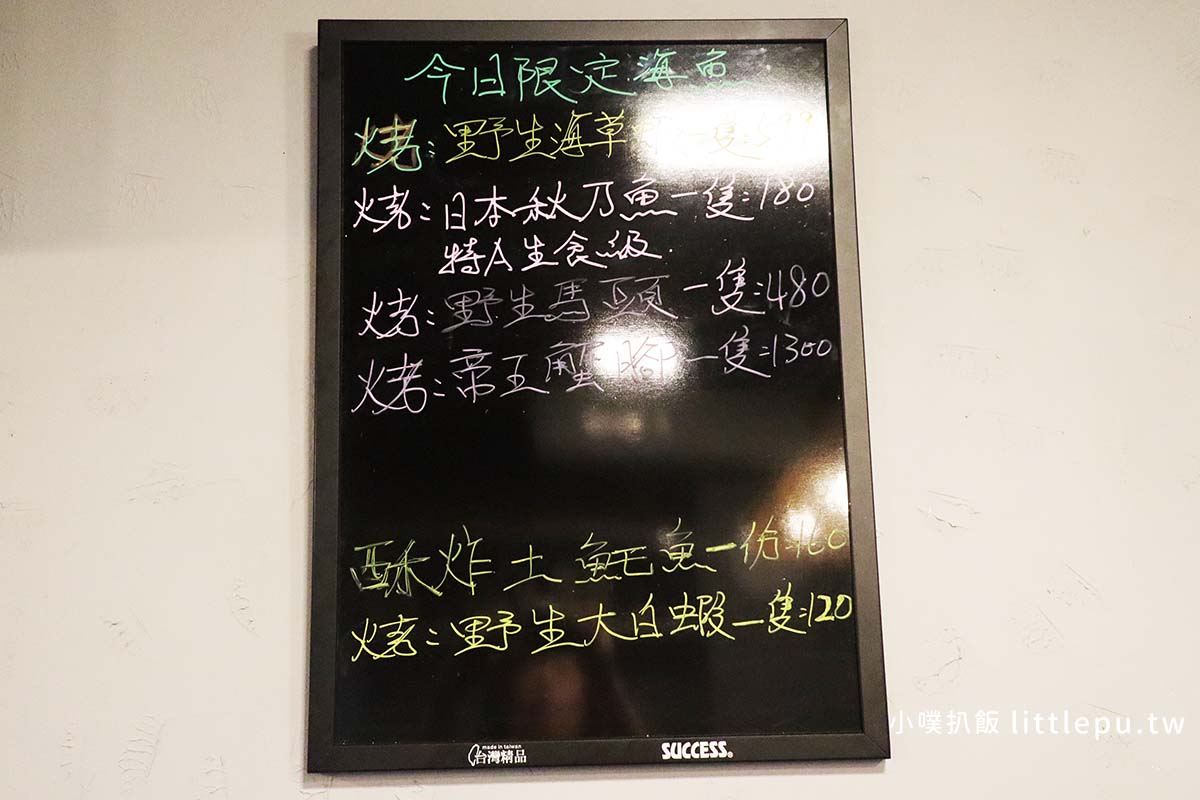 今日限定海魚
烤:野生海草蝦一隻:599
烤:日本秋刀魚一隻:180
特A生食級
烤:野生馬頭一隻:480
烤:帝王蟹腳一隻:1300
酥炸土魠魚一份:160
烤:野生大白蝦一隻:120
made in taiwan
台灣精品
SUCCESS®
小噗扒飯 littlepu.tw